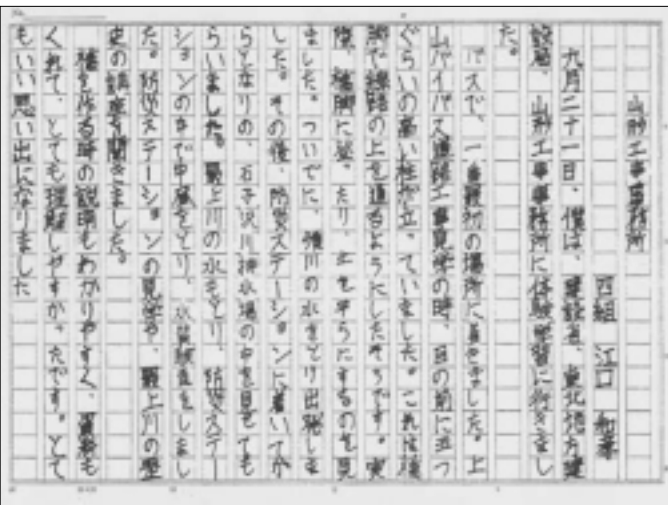 山形工事事務所
四組 江口 和華
九月二十一日、僕は、建設省、東北地方建
設局、山形工事事務所に体験学習に行きまし
た。
バスで、一番最初の場所に着きました。上
山バイパス道路工事見学の時、目の前に立つ
ぐらいの高い柱が立っていました。これは後
で線路の上を通るようにしたそうです。実
際、橋脚に登ったり、土を平らにするのを見
ました。ついでに、須川の水をとり出発しま
した。その後、防災ステーションに着いてか
らとなりの、石子沢川排水場の中を見せても
らいました。最上川の水をとり、防災ステー
ションの中で中食をとり、水質検査をしまし
た。防災ステーションの見学や、最上川の歴
史の講座を聞きました。
橋を作る時の説明もわかりやすく、資料も
くれて、とても理解しやすかったです。とて
もいい思い出になりました